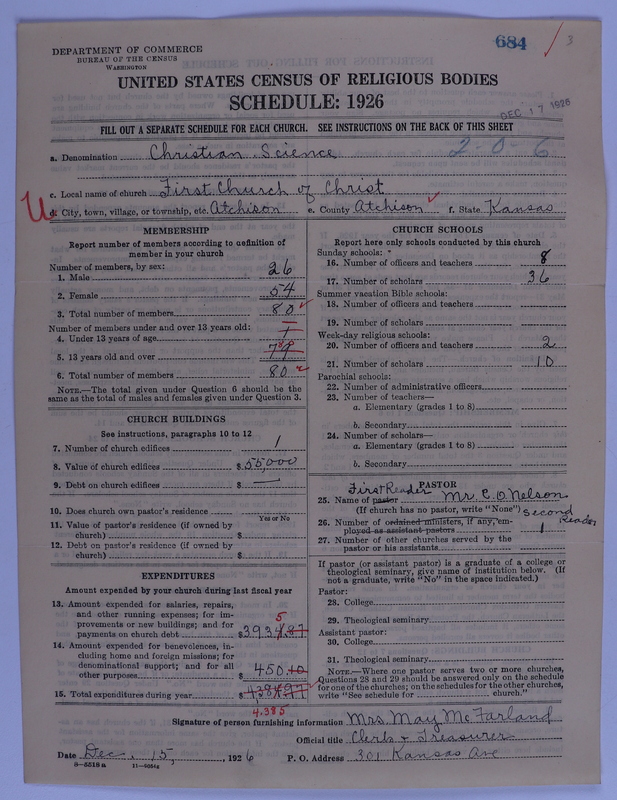 684 / 3
DEPARTMENT OF COMMERCE
BUREAU OF THE CENSUS
WASHINGTON
UNITED STATES CENSUS OF RELIGIOUS BODIES
SCHEDULE: 1926
DEC 17 1926
FILL OUT A SEPARATE SCHEDULE FOR EACH CHURCH. SEE INSTRUCTIONS ON THE BACK OF THIS SHEET
a. Denomination Christian Science 2-0-6
c. Local name of church First Church of Christ
U d. City, town, village, or township, etc. Atchison e. County Atchison f. State Kansas
MEMBERSHIP
Report number of members according to definition of
member in your church
Number of members, by sex:
1. Male 26
2. Female 54
3. Total number of members 80
Number of members under and over 13 years old:
4. Under 13 years of age 1
5. 13 years old and over 79
6. Total number of members 80
NOTE.—The total given under Question 6 should be
same as the total of males and females given under Question 3.
CHURCH BUILDINGS
See instructions, paragraphs 10 to 12
7. Number of church edifices 1
8. Value of church edifices $55,000
9. Debt on church edifices $ —
10. Does church own pastor's residence
Yes or No
11. Value of pastor's residence (if owned by
church) $
12. Debt on pastor's residence (if owned by
church) $
EXPENDITURES
Amount expended by your church during last fiscal year
13. Amount expended for salaries, repairs,
and other running expenses; for im-
provements or new buildings; and for 5
payments on church debt $3934.87
14. Amount expended for benevolences, in-
cluding home and foreign missions; for
denominational support; and for all
other purposes $450.10
15. Total expenditures during year $4384.97
4.385
CHURCH SCHOOLS
Report here only schools conducted by this church
Sunday schools:
16. Number of officers and teachers 8
17. Number of scholars 36
Summer vacation Bible schools:
18. Number of officers and teachers
19. Number of scholars
Week-day religious schools:
20. Number of officers and teachers 2
21. Number of scholars 10
Parochial schools:
22. Number of administrative officers
23. Number of teachers—
a. Elementary (grades 1 to 8)
b. Secondary
24. Number of scholars—
a. Elementary (grades 1 to 8)
b. Secondary
PASTOR
First Reader
25. Name of pastor Mr. C. O. Nelson
(If church has no pastor, write "None") Second
26. Number of ordained ministers, if any, em- Reader
ployed as assistant pastors 1
27. Number of other churches served by the
pastor or his assistants
If pastor (or assistant pastor) is a graduate of a college or
theological seminary, give name of institution below. (If
not a graduate, write "No" in the space indicated.)
Pastor:
28. College
29. Theological seminary
Assistant pastor:
30. College
31. Theological seminary
NOTE.—Where one pastor serves two or more churches,
Questions 28 and 29 should be answered only on the schedule
for one of the churches; on the schedules for the other churches,
write "See schedule for church."
Signature of person furnishing information Mrs. May McFarland
Official title Clerk & Treasurer
Date Dec. 15, , 1926 P. O. Address 301 Kansas Ave
8-5518a 11-9554